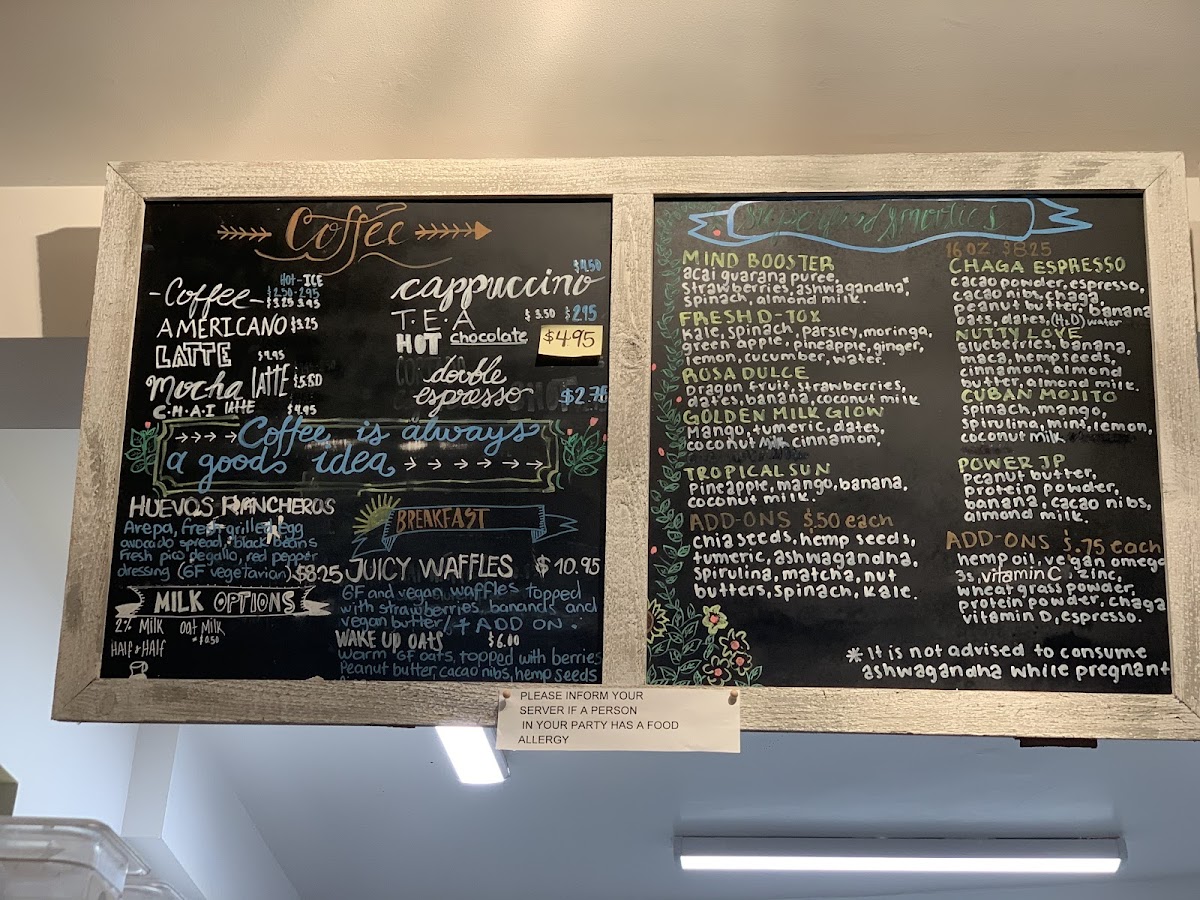 Coffee
HOT - ICE
$2.50 - 2.95
-Coffee- $3.25 3.95
AMERICANO $3.25
LATTE $4.95
Mocha LATTE $5.50
C.H.A.I LATTE $4.95
$4.50
cappuccino
T.E.A $3.50 $2.95
HOT chocolate $4.95
double
espresso $2.75
Coffee is always
a good idea
HUEVOS RANCHEROS
Arepa, fresh grilled egg
avocado spread, black beans
Fresh pico degallo, red pepper
dressing (GF vegetarian) $8.25
MILK OPTIONS
2% Milk oat Milk
+ $0.50
HALF & HALF
BREAKFAST
JUICY WAFFLES $10.95
GF and vegan waffles topped
with strawberries, bananas and
vegan butter/ + ADD ON.
WAKE UP OATS $6.00
Warm GF oats, topped with berries
Peanut butter, cacao nibs, hemp seeds
Superfood Smoothies
MIND BOOSTER
acai guarana puree,
strawberries, ashwagandha*,
spinach, almond milk.
FRESH D-TOX
kale, spinach, parsley, moringa,
green apple, pineapple, ginger,
lemon, cucumber, water.
ROSA DULCE
dragon fruit, strawberries,
dates, banana, coconut milk
GOLDEN MILK GLOW
Mango, tumeric, dates,
coconut milk cinnamon,
TROPICAL SUN
pineapple, mango, banana,
coconut milk.
ADD-ONS $.50 each
chia seeds, hemp seeds,
tumeric, ashwagandha,
spirulina, matcha, nut
butters, spinach, kale.
16 OZ $8.25
CHAGA ESPRESSO
cacao powder, espresso,
cacao nibs, chaga,
peanut butter, banana
oats, dates, (H2O) water
NUTTY LOVE
blueberries, banana,
maca, hemp seeds,
cinnamon, almond
butter, almond milk.
CUBAN MOJITO
spinach, mango,
spirulina, mint, lemon,
coconut milk
POWER JP
peanut butter,
protein powder,
banana, cacao nibs,
almond milk.
ADD-ONS $.75 each
hemp oil, vegan omega
3s, vitamin C, zinc,
wheat grass powder,
protein powder, chaga
vitamin D, espresso.
* It is not advised to consume
ashwagandha while pregnant
PLEASE INFORM YOUR
SERVER IF A PERSON
IN YOUR PARTY HAS A FOOD
ALLERGY